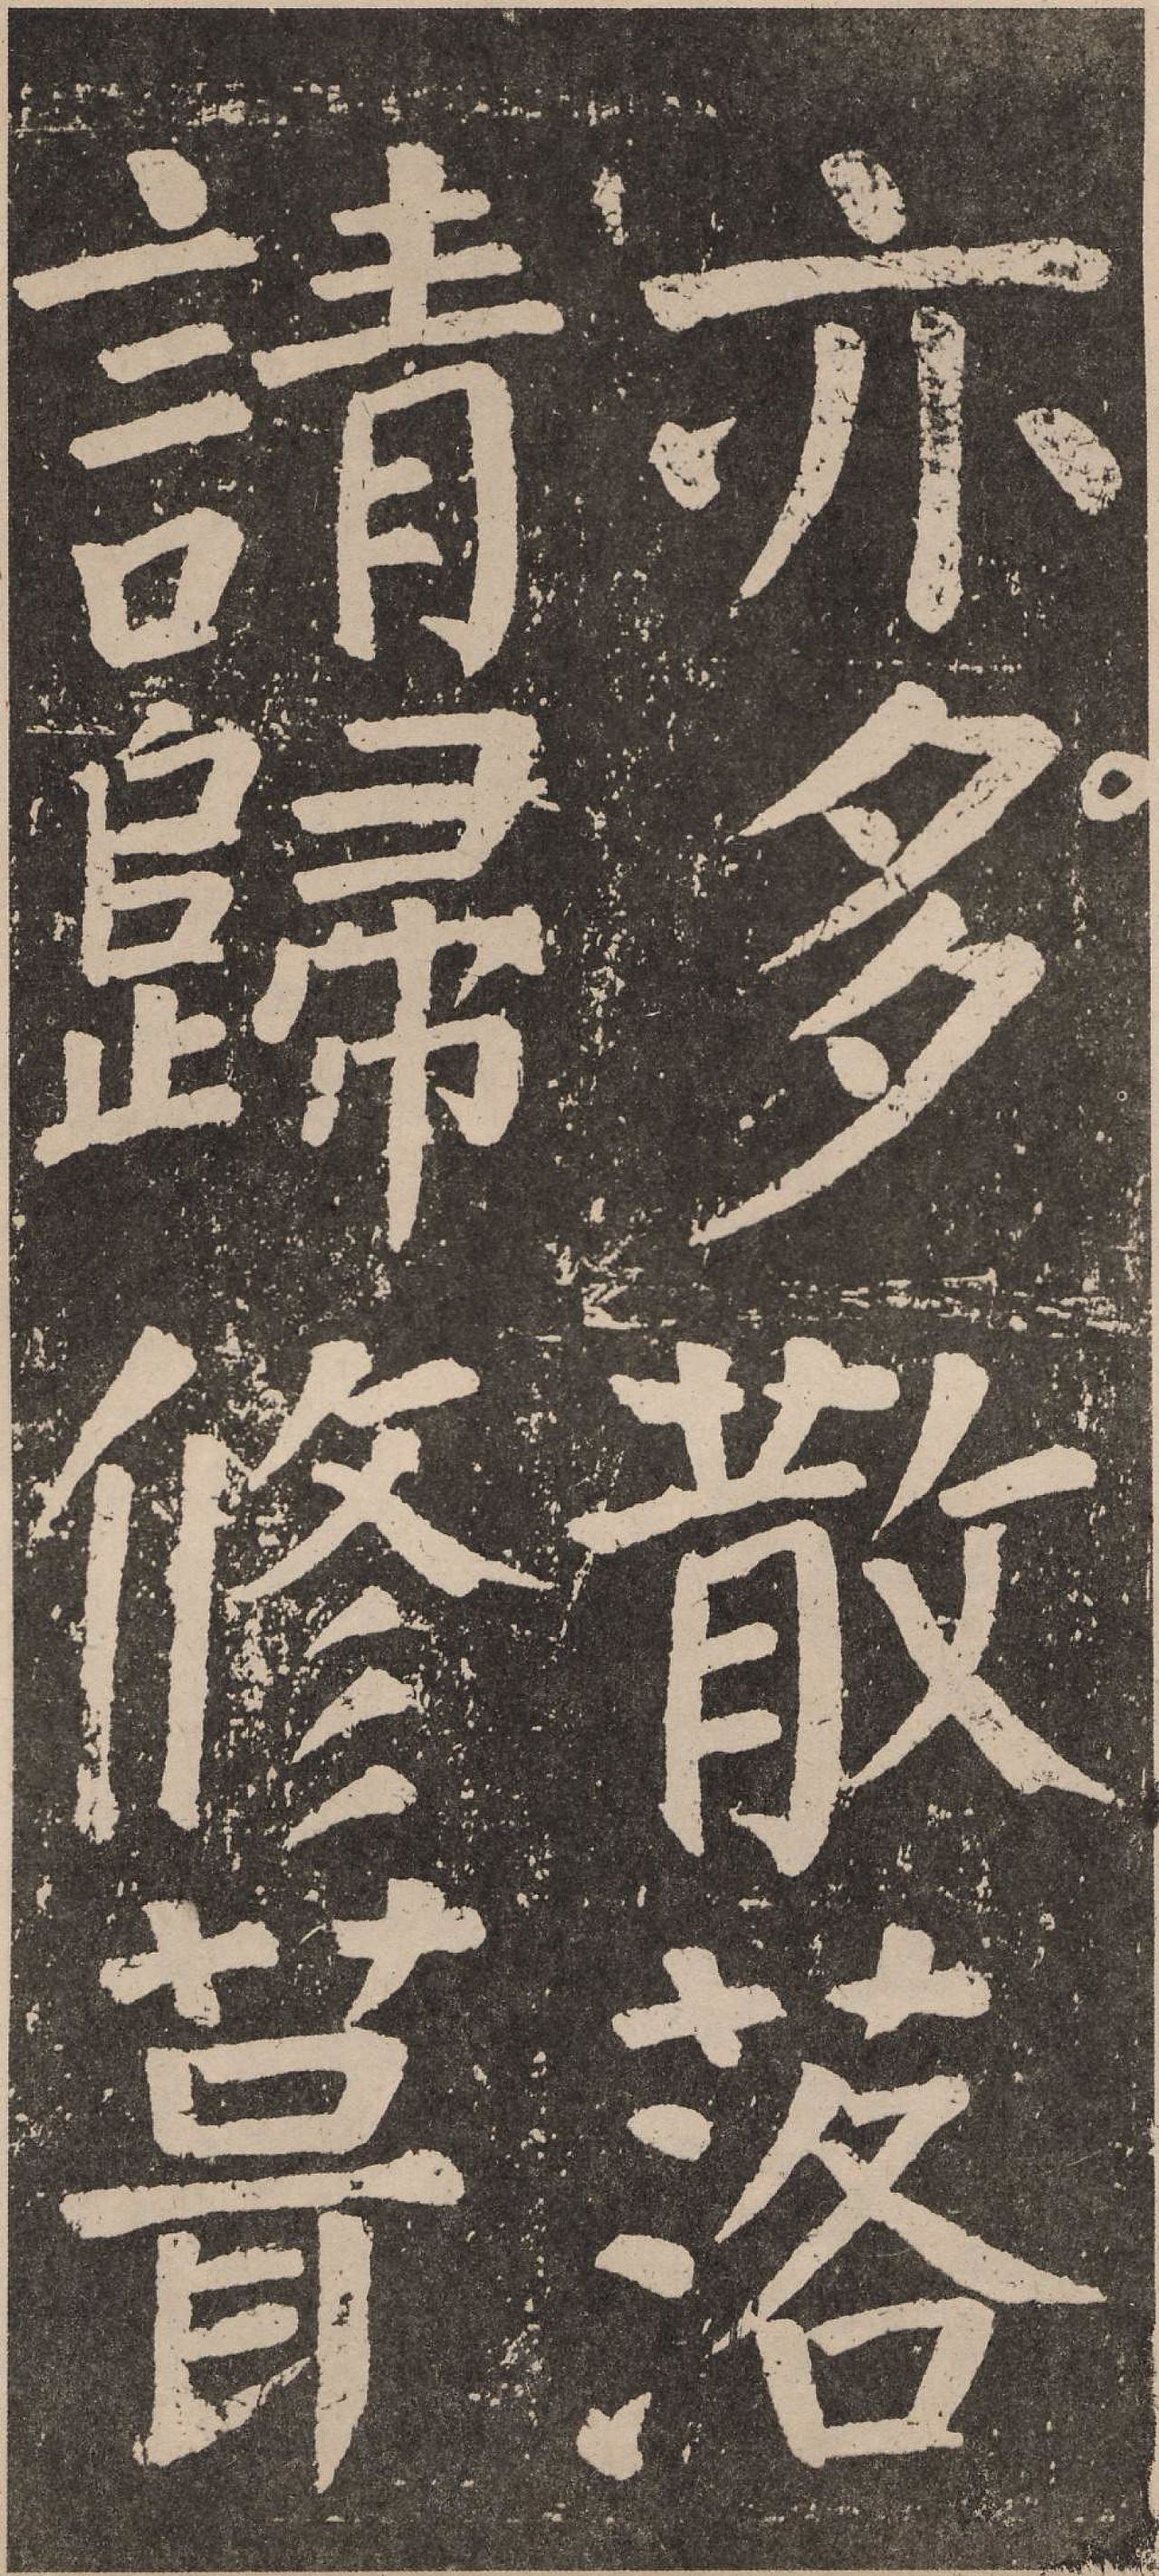 亦多散落
請歸修葺